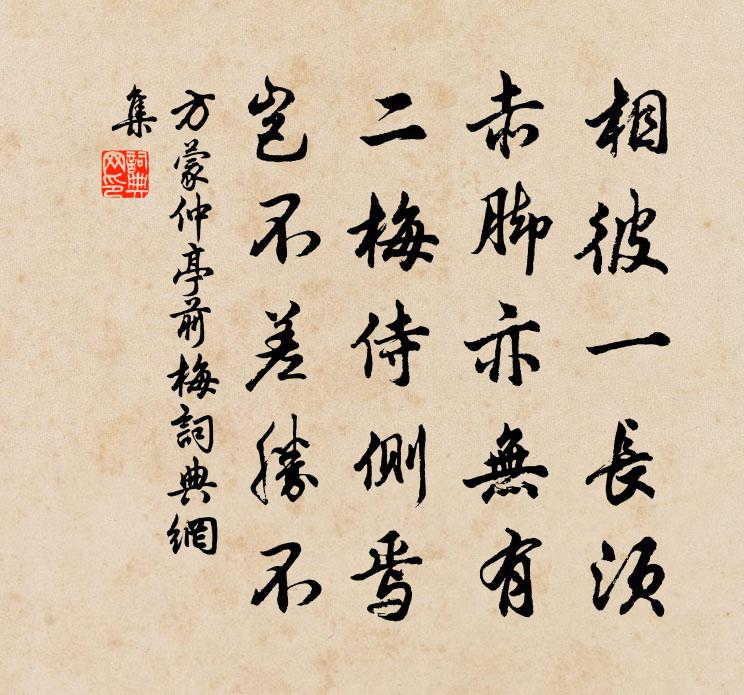 相彼一長須
赤脚亦無有
二梅侍側焉
豈不差勝不
方蒙仲亭前梅詞典網
集
詞典網印